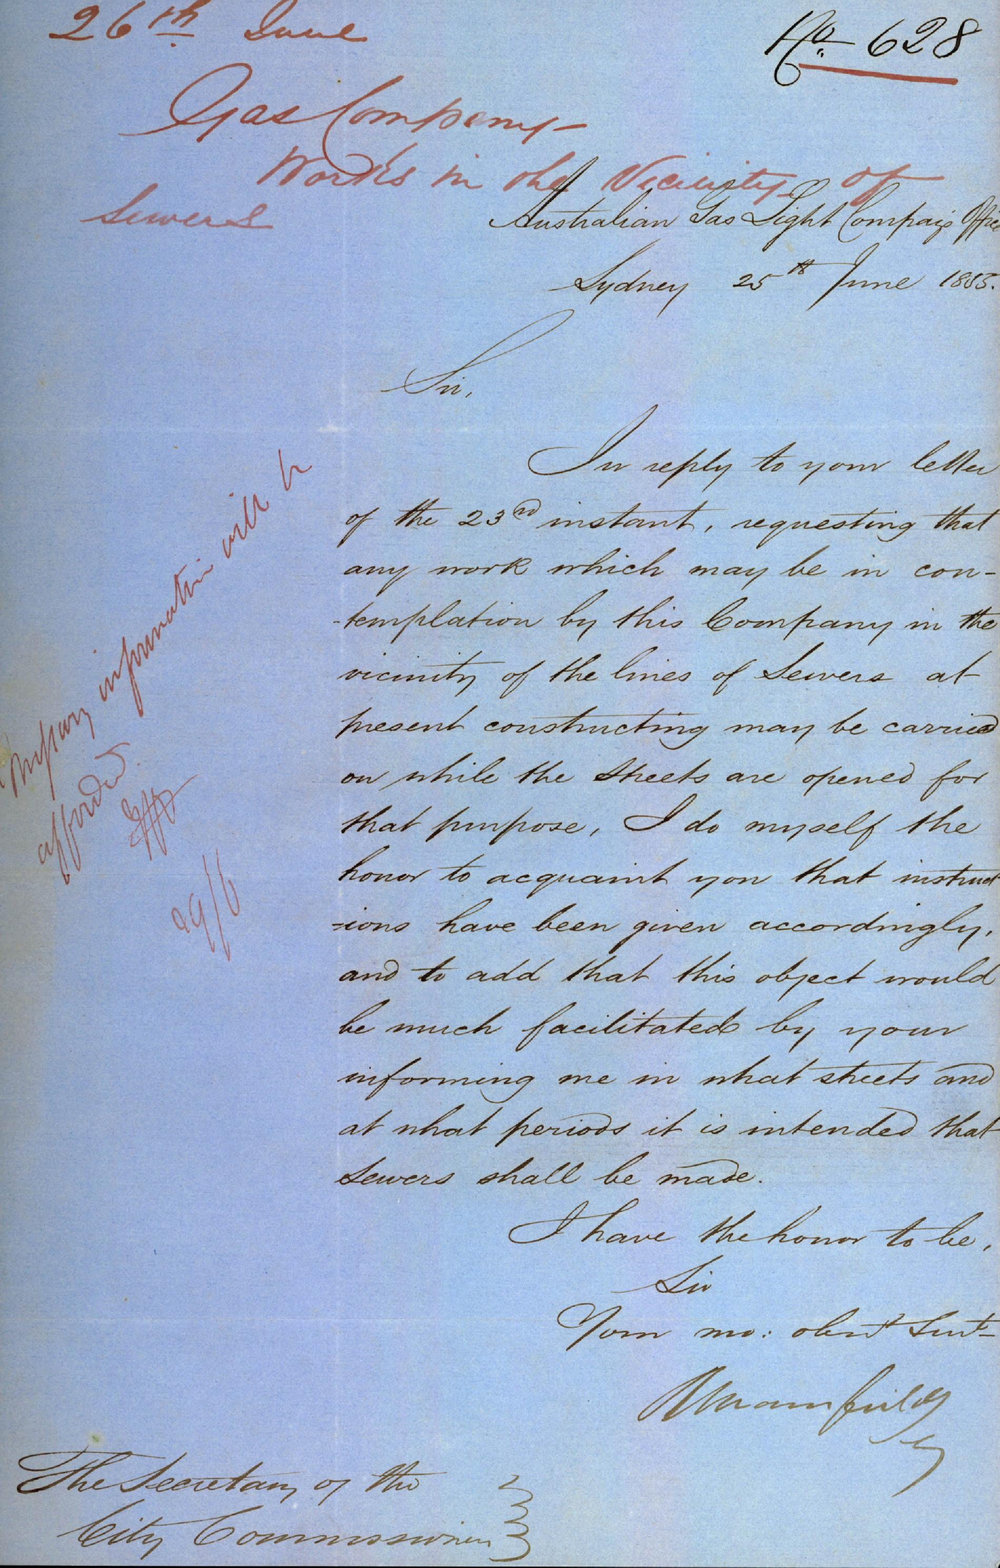 26th June
No 628
Gas Company
Works in the Vicinity of
Sewers
Australian Gas Light Company's Office
Sydney 25th June 1855.
Sir,
In reply to your letter
of the 23rd instant, requesting that
any work which may be in con-
-templation by this Company in the
vicinity of the lines of Sewers at
present constructing may be carried
on while the streets are opened for
that purpose, I do myself the
honor to acquaint you that instruct
-ions have been given accordingly,
and to add that this object would
be much facilitated by your
informing me in what streets and
at what periods it is intended that
Sewers shall be made.
I have the honor to be,
Sir
Your mo: obent Servt
R Mansfield
The Secretary of the
City Commissioners
information will be
afforded.
29/6